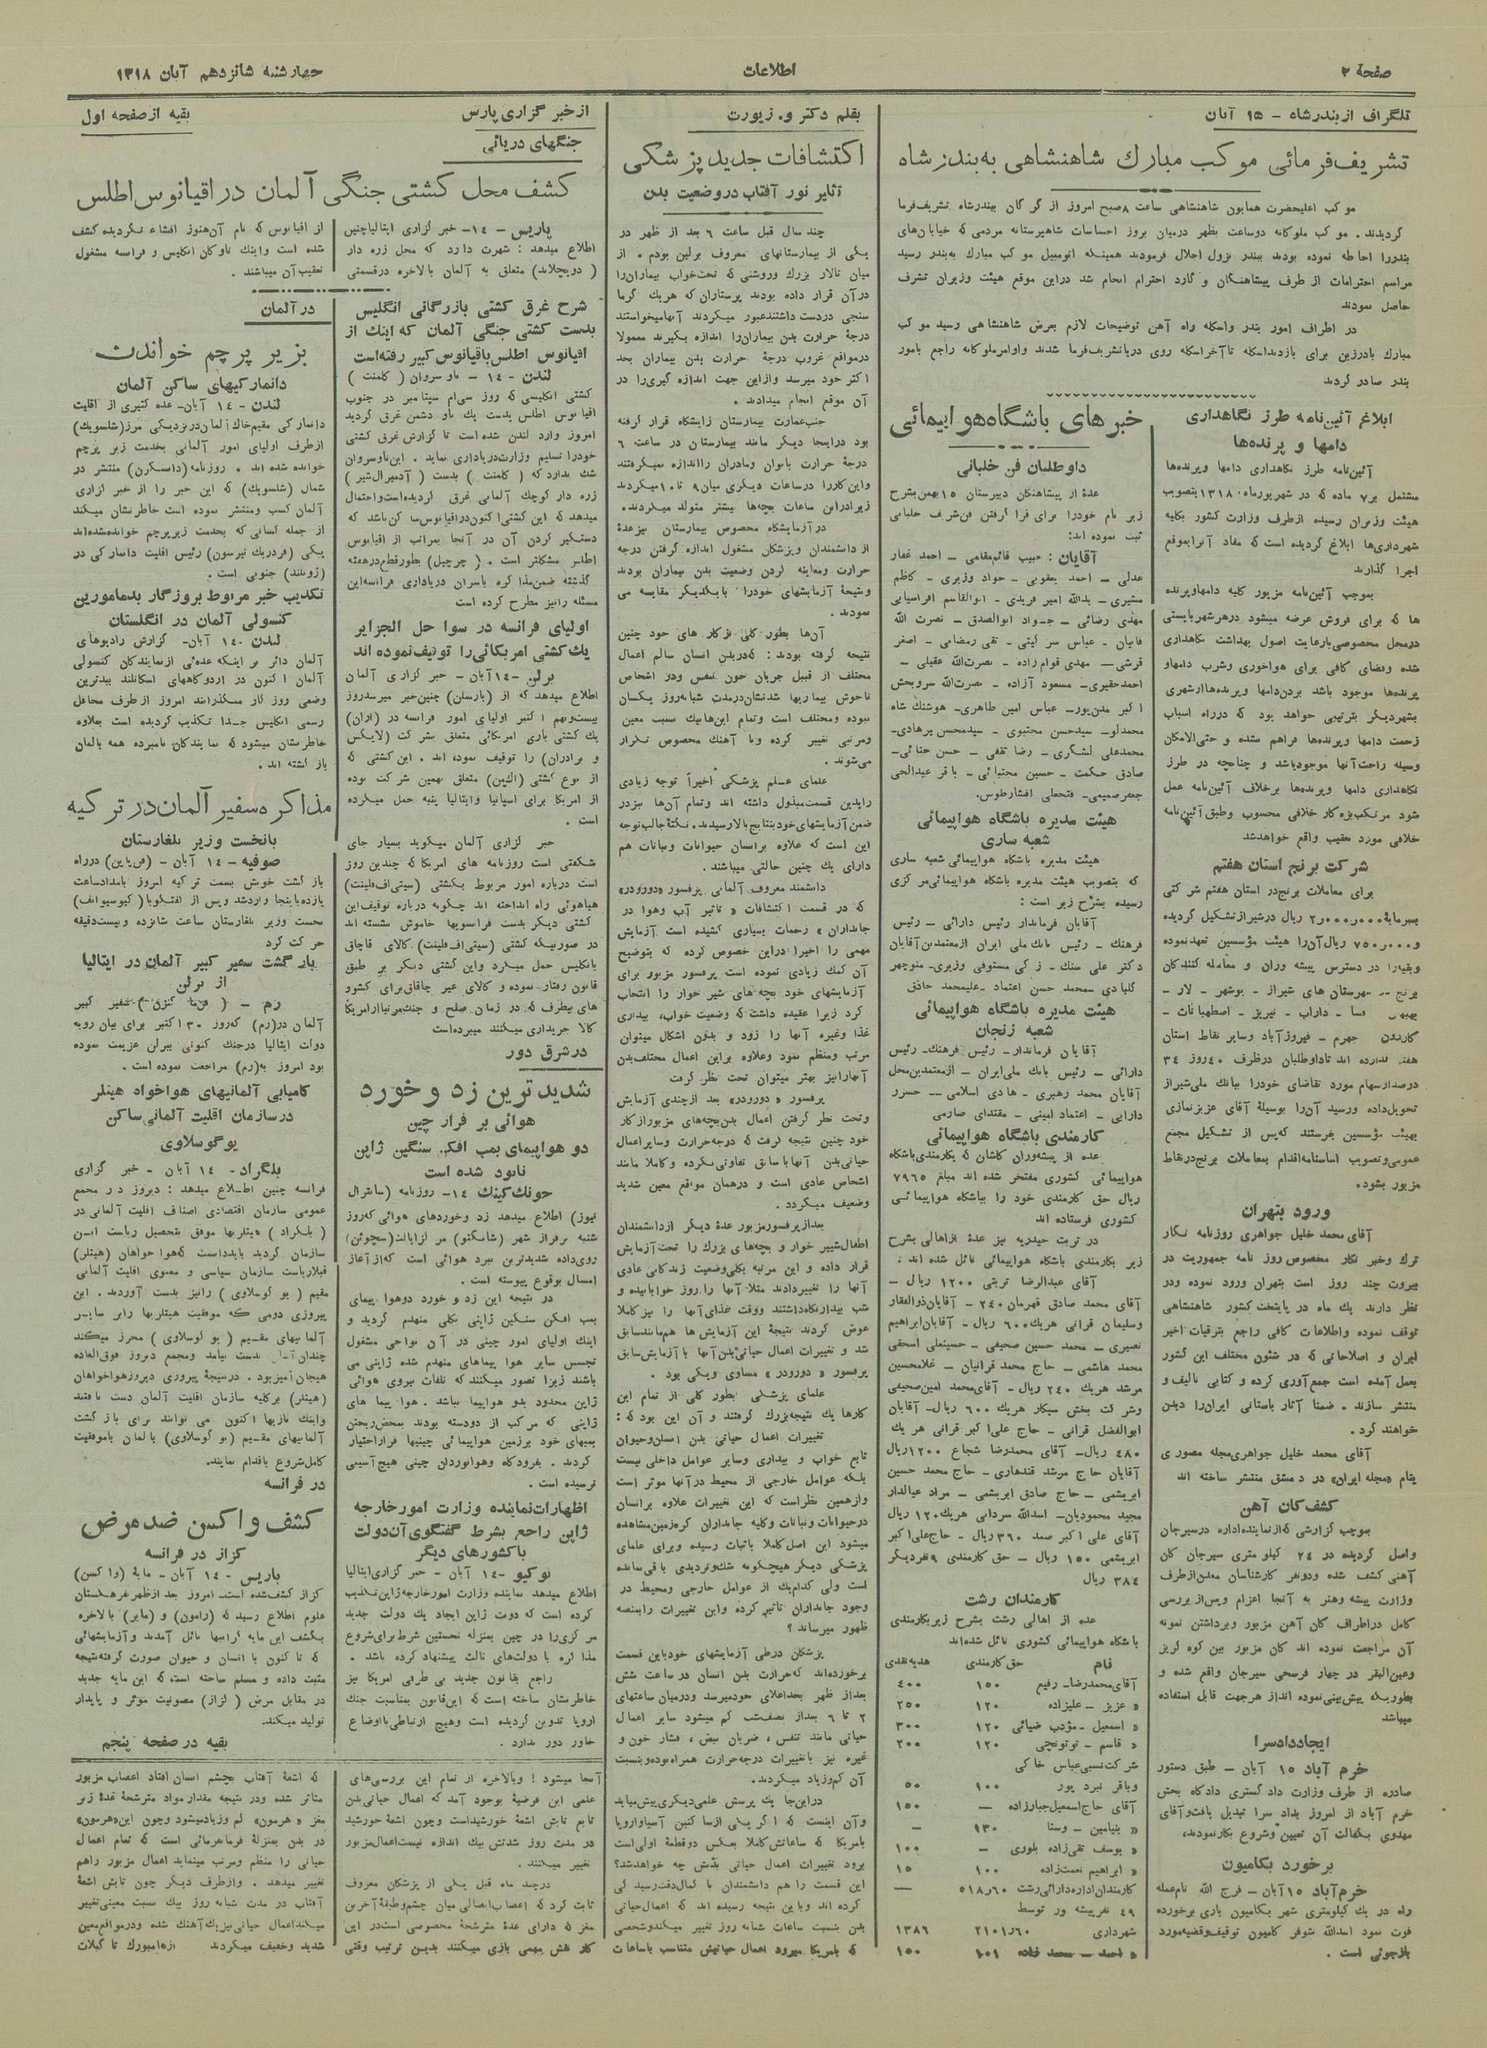 صفحهٔ ۲
اطلاعات
چهارشنبه شانزدهم آبان ۱۳۱۸
تلگراف از بندرشاه - ۱۵ آبان
تشریف‌فرمائی موکب مبارک شاهنشاهی به‌بندرشاه
موکب اعلیحضرت همایون شاهنشاهی ساعت ۸ صبح امروز از گرگان ببندرشاه تشریف‌فرما
گردیدند. موکب ملوکانه دوساعت بظهر درمیان بروز احساسات شاهپرستانه مردمی که خیابان‌های
بندررا احاطه نموده بودند ببندر نزول اجلال فرمودند همینکه اتومبیل موکب مبارک به‌بندر رسید
مراسم احترامات از طرف پیشاهنگان و گارد احترام انجام شد دراین موقع هیئت وزیران تشرف
حاصل نمودند
در اطراف امور بندر واسکله راه آهن توضیحات لازم بعرض شاهنشاهی رسید موکب
مبارک بادرزین برای بازدیداسکله تاآخراسکله روی دریاتشریف‌فرما شدند واوامرملوکانه راجع بامور
بندر صادر گردید
ابلاغ آئین‌نامه طرز نگاهداری
دامها و پرنده‌ها
آئین‌نامه طرز نگاهداری دامها وپرنده‌ها
مشتمل بر۷ ماده که در شهریورماه ۱۳۱۸ بتصویب
هیئت وزیران رسیده ازطرف وزارت کشور بکلیه
شهرداری‌ها ابلاغ گردیده است که مفاد آنرابموقع
اجرا گذارند
بموجب آئین‌نامه مزبور کلیه دامهاوپرنده
ها که برای فروش عرضه میشود درهرشهربایستی
درمحل مخصوصی بارعایت اصول بهداشت نگاهداری
شده وفضای کافی برای هواخوری وشرب دامهاو
پرنده‌ها موجود باشد بردن‌دامها وپرنده‌هاازشهری
بشهردیگر بترتیبی خواهد بود که درراه اسباب
زحمت دامها وپرنده‌ها فراهم نشده و حتی‌الامکان
وسیله راحت‌آنها موجودباشد و چنانچه در طرز
نگاهداری دامها وپرنده‌ها برخلاف آئین‌نامه عمل
شود مرتکب‌بزه‌کار خلافی محسوب وطبق آئین‌نامه
خلافی مورد تعقیب واقع خواهدشد
شرکت برنج استان هفتم
برای معاملات برنج‌در استان هفتم شرکتی
وبقیه‌را در دسترس پیشه وران و معامله کنندگان
برنج شهرستان های شیراز - بوشهر - لار -
- داراب - نیریز - اصطهبانات -
جهرم - فیروزآباد وسایر نقاط استان
تحویل‌داده ورسید آن‌را بوسیلهٔ آقای عزیزنمازی
بهیئت مؤسسین بفرستند که‌پس از تشکیل مجمع
عمومی‌وتصویب اساسنامه‌اقدام بمعاملات برنج‌درنقاط
مزبور بشود.
ورود بتهران
آقای محمد خلیل جواهری روزنامه نگار
ترک وخبر نگار مخصوص روز نامه جمهوریت در
بیروت چند روز است بتهران ورود نموده ودر
نظر دارند یک ماه در پایتخت کشور شاهنشاهی
توقف نموده واطلاعات کافی راجع بترقیات اخیر
ایران و اصلاحاتی که در شئون مختلف این کشور
بعمل آمده است جمع‌آوری کرده و کتابی تالیف و
منتشر سازند. ضمنا آثار باستانی ایران‌را دیدن
خواهند کرد.
آقای محمد خلیل جواهری‌مجله مصوری
بنام «مجله ایران» در دمشق منتشر ساخته اند
کشف‌کان آهن
بموجب گزارشی که‌ازنماینده‌اداره درسیرجان
واصل گردیده در ۲۴ کیلو متری سیرجان کان
آهنی کشف شده ودونفر کارشناسان معدن‌ازطرف
وزارت پیشه وهنر به آنجا اعزام وپس‌از بررسی
کامل دراطراف کان آهن مزبور وبرداشتن نمونه
آن مراجعت نموده اند کان مزبور بین کوه لریز
وعین‌البقر در چهار فرسخی سیرجان واقع شده و
بطوریکه پیش‌بینی‌نموده اندازهرجهت قابل استفاده
میباشد
ایجاددادسرا
خرم آباد ۱۵ آبان - طبق دستور
صادره از طرف وزارت دادگستری دادگاه بخش
خرم آباد از امروز بداد سرا تبدیل یافت‌وآقای
مهدوی بکفالت آن تعیین وشروع بکارنمودند.
برخورد بکامیون
خرم‌آباد ۱۵ آبان - فرج الله نام‌عمله
راه در یک کیلومتری شهر بکامیون باری برخورده
فوت نمود اسدالله شوفر کامیون توقیف‌وقضیه‌مورد
بازجوئی است.
خبرهای باشگاه‌هواپیمائی
داوطلبان فن خلبانی
عدهٔ از پیشاهنگان دبیرستان ۱۵ بهمن بشرح
زیر نام خودرا برای فرا گرفتن فن‌شریف خلبانی
ثبت نموده اند:
آقایان: حبیب قائم‌مقامی - احمد غفار
عدلی - احمد یعقوبی - جواد وزیری - کاظم
مشیری - یدالله امیر فریدی - ابوالقاسم افراسیابی
مهدی رضائی - جواد ابوالصدق - نصرت الله
فانیان - عباس سرلیتی - تقی رمضانی - اصغر
قرشی - مهدی قوام زاده - نصرت‌الله عقیلی -
احمدحقیری - مسعود آزاده - نصرت‌الله سروبخش
اکبر مدن‌پور - عباس امین طاهری - هوشنگ شاه
محمدلو - سیدحسن مجتبوی - سیدمحسن پرهادی -
محمدعلی لشگری - رضا ثقفی - حسن حنائی -
صادق حکمت - حسین مجتبائی - باقر عبدالحی
جعفرصمیمی - فتحعلی افشارطوس.
هیئت مدیره باشگاه هواپیمائی
شعبه ساری
هیئت مدیره باشگاه هواپیمائی شعبه ساری
که بتصویب هیئت مدیره باشگاه هواپیمائی‌مرکزی
رسیده بشرح زیر است:
آقایان فرماندار رئیس دارائی - رئیس
فرهنگ - رئیس بانک ملی ایران ازمعتمدین‌آقایان
دکتر علی سنگ - زکی مستوفی وزیری - منوچهر
گلبادی - محمد حسن اعتماد - علیمحمد حاذق
هیئت مدیره باشگاه هواپیمائی
شعبه زنجان
آقایان فرماندار - رئیس فرهنگ - رئیس
دارائی - رئیس بانک ملی‌ایران - ازمعتمدین‌محل
آقایان محمد رهبری - هادی اسلامی - خسرو
دارابی - اعتماد امینی - مقتدای صارمی
کارمندی باشگاه هواپیمائی
عده از پیشه‌وران کاشان که بکارمندی‌باشگاه
هواپیمائی کشوری مفتخر شده اند مبلغ ۷۹۶۵
ریال حق کارمندی خود را بباشگاه هواپیمائی
کشوری فرستاده اند
در تربت حیدریه نیز عدهٔ ازاهالی بشرح
زیر بکارمندی باشگاه هواپیمائی نائل شده اند:
آقای عبدالرضا تربتی ۱۲۰۰ ریال -
آقای محمد صادق قهرمان ۲۴۰ - آقایان‌ذوالفقار
وسلیمان قرائی هریک ۶۰۰ ریال - آقایان‌ابراهیم
نصیری - محمد حسین صحیفی - حسینعلی اسحقی
محمد هاشمی - حاج محمد قرائیان - غلامحسین
مرشد هریک ۲۴۰ ریال - آقای‌محمد امین‌صحیفی
وشرکت پخش سیگار هریک ۶۰۰ ریال - آقایان
ابوالفضل قرائی - حاج علی اکبر قرائی هر یک
۴۸۰ ریال - آقای محمدرضا شجاع ۱۲۰۰ ریال
آقایان حاج مرشد قندهاری - حاج محمد حسین
ابریشمی - حاج صادق ابریشمی - مراد عیالدار
مجید محمودیان - اسدالله سردانی هریک ۱۲۰ ریال
آقای علی اکبر صمد ۳۶۰ ریال - حاج‌علی‌اکبر
ابریشمی ۱۵۰ ریال - حق کارمندی ۹ نفردیگر
۳۸۴ ریال
کارمندان رشت
عده از اهالی رشت بشرح زیربکارمندی
باشگاه هواپیمائی کشوری نائل شده‌اند
نام حق‌کارمندی هدیه‌نقدی
آقای‌محمدرضا - رفیع ۱۵۰ ۴۰۰
« عزیز - علیزاده ۱۲۰ ۲۵۰
« اسمعیل - مؤدب ضیائی ۱۲۰ ۳۰۰
« قاسم - توتونچی ۱۲۰ ۲۰۰
شرکت‌نسبی‌عباس خاکی
وباقر نبرد پور ۱۰۰ ۵۰
آقای حاج‌اسمعیل‌جبارزاده - ۱۵۰
« بنیامین - وسنا ۱۳۰ -
« یوسف تقی‌زاده بلوری - ۱۰۰
« ابراهیم نعمت‌زاده ۱۰۰ ۱۵
کارمندان‌اداره‌دارائی‌رشت ۵۱۸٫۶۰ -
۴۹ نفرپیشه ور توسط
شهرداری ۲۱۰۱٫۶۰ ۱۳۸۶
« احمد - سعید زاده ۱۰۱ ۱۵۰
بقلم دکتر و. زیورت
اکتشافات جدید پزشکی
تاثیر نور آفتاب دروضعیت بدن
چند سال قبل ساعت ۶ بعد از ظهر در
یکی از بیمارستانهای معروف برلین بودم. از
میان تالار بزرگ وروشنی که تخت‌خواب بیماران‌را
درآن قرار داده بودند پرستاران که هریک گرما
سنجی دردست داشتندعبور میکردند آنهامیخواستند
درجهٔ حرارت بدن بیماران‌را اندازه بگیرند معمولا
درمواقع غروب درجهٔ حرارت بدن بیماران بحد
اکثر خود میرسد وازاین جهت اندازه گیری‌را در
آن موقع انجام میدادند.
جنب‌عمارت بیمارستان زایشگاه قرار گرفته
بود دراینجا دیگر مانند بیمارستان در ساعت ۶
درجهٔ حرارت بانوان ومادران رااندازه نمیگرفتند
واین‌کاررا درساعات دیگری میان۹ تا۱۰میکردند
زیرادراین ساعات بچه‌ها بیشتر متولد میگردند.
درآزمایشگاه مخصوص بیمارستان نیزعدهٔ
از دانشمندان وپزشکان مشغول اندازه گرفتن درجه
حرارت ومعاینه کردن وضعیت بدن بیماران بودند
ونتیجهٔ آزمایشهای خودرا بایکدیگر مقایسه می
نمودند.
آن‌ها بطور کلی ازکار های خود چنین
نتیجه گرفته بودند: که‌دربدن انسان سالم اعمال
مختلف از قبیل جریان خون تنفس ودر اشخاص
ناخوش بیماریها شدتشان‌درمدت شبانه‌روز یکسان
نبوده ومختلف است وتمام این‌هابیک نسبت معین
ومرتبی تغییر کرده وبا آهنگ مخصوص تکرار
می‌شوند.
علمای علم پزشکی اخیراً توجه زیادی
باین قسمت‌مبذول داشته اند وتمام آن‌ها نیزدر
ضمن آزمایشهای خودبنتایج‌بالارسیدند. نکتهٔ‌جالب‌توجه
این است که علاوه برانسان حیوانات ونباتات هم
دارای یک چنین حالتی میباشند.
دانشمند معروف آلمانی پرفسور «دورودر»
که در قسمت اکتشافات « تاثیر آب وهوا در
جانداران » زحمات بسیاری کشیده است آزمایش
مهمی را اخیرا دراین خصوص کرده که بتوضیح
آن کمک زیادی نموده است پرفسور مزبور برای
آزمایشهای خود بچه های شیر خوار را انتخاب
کرد زیرا عقیده داشت که وضعیت خواب، بیداری
غذا وغیره آنها را زود و بدون اشکال میتوان
مرتب ومنظم نمود وعلاوه براین اعمال مختلف‌بدن
آنهارانیز بهتر میتوان تحت نظر گرفت
پرفسور « دورودر» بعد ازچندی آزمایش
وتحت نظر گرفتن اعمال بدن‌بچه‌های مزبورازکار
خود چنین نتیجه گرفت که درجه‌حرارت وسایراعمال
حیاتی‌بدن آنهاباسابق تفاوتی‌نکرده وکاملا مانند
اشخاص عادی است و درهمان مواقع معین شدید
وضعیف میگردد.
بعدازپرفسورمزبور عدهٔ دیگر ازدانشمندان
اطفال‌شیر خوار و بچه‌های بزرگ را تحت‌آزمایش
قرار داده و این مرتبه بکلی‌وضعیت زندگانی عادی
آنها را تغییردادند مثلا آنها را روز خوابانیده و
شب بیدارنگاه‌داشتند ووقت غذای‌آنها را نیزکاملا
عوض کردند نتیجهٔ این آزمایش ها هم‌مانندسابق
شد و تغییرات اعمال حیاتی‌بدن آنها با آزمایش‌سابق
پرفسور « دورودر » مساوی ویکی بود.
علمای پزشکی بطور کلی از تمام این
کارها یک نتیجه‌بزرگ گرفتند و آن این بود که:
تغییرات اعمال حیاتی بدن انسان‌وحیوان
تابع خواب و بیداری وسایر عوامل داخلی نیست
بلکه عوامل خارجی از محیط درآنها موثر است
وازهمین نظراست که این تغییرات علاوه برانسان
درحیوانات ونباتات وکلیه جانداران کره‌زمین‌مشاهده
میشود این اصل‌کاملا باثبات رسیده وبرای علمای
پزشکی دیگر هیچگونه شک‌وتردیدی باقی‌نمانده
است ولی کدام‌یک از عوامل خارجی ومحیط در
وجود جانداران تاثیر کرده واین تغییرات رابمنصه
ظهور میرساند؟
پزشکان درطی آزمایشهای خودباین قسمت
برخورده‌اند که‌حرارت بدن انسان در ساعت شش
بعداز ظهر بحداعلای خودمیرسد ودرمیان ساعتهای
۲ تا ۶ بعداز نصف‌شب کم میشود سایر اعمال
حیاتی مانند تنفس، ضربان نبض، فشار خون و
غیره نیز باتغییرات درجه‌حرارت همراه‌بوده‌وبنسبت
آن کم‌وزیاد میگردند.
دراین‌جا یک پرسش علمی‌دیگری پیش‌میاید
وآن اینست که اگر یکی ازساکنین آسیاواروپا
بامریکا که ساعاتش‌کاملا بعکس دوقطعهٔ اولی‌است
برود تغییرات اعمال حیاتی بدنش چه خواهدشد؟
این قسمت را هم دانشمندان با کمال‌دقت‌رسیدگی
کرده اند وباین نتیجه رسیده اند که اعمال‌حیاتی
بدن بنسبت ساعات شبانه روز تغییر میکندوشخصی
که بامریکا میرود اعمال حیاتیش متناسب باساعات
آنجا میشود! وبالاخره از تمام این بررسی‌های
علمی این فرضیهٔ بوجود آمد که اعمال حیاتی‌بدن
تابع تابش اشعهٔ خورشیداست وچون اشعهٔ خورشید
در مدت روز شدتش بیک اندازه نیست‌اعمال‌مزبور
تغییر میکنند.
درچند ماه قبل یکی از پزشکان معروف
ثابت کرد که اعصاب اتصالی میان چشم‌وطبقهٔ‌آخرین
مغز که دارای غدهٔ مترشحهٔ مخصوصی است‌در این
کار نقش مهمی بازی میکنند بدین ترتیب وقتی
که اشعهٔ آفتاب بچشم انسان افتاد اعصاب مزبور
متأثر شده ودر نتیجه مقدارمواد مترشحهٔ غدهٔ زیر
مغز « هرمون» کم وزیادمیشود وچون این«هرمون»
در بدن بمنزلهٔ فرمانفرمائی است که تمام اعمال
حیاتی را منظم ومرتب مینماید اعمال مزبور راهم
تغییر میدهد. وازطرف دیگر چون تابش اشعهٔ
آفتاب در مدت شبانه روز بیک نسبت معینی‌تغییر
میکنداعمال حیاتی‌نیزبک‌آهنگ شده ودرمواقع‌معین
شدید وخفیف میگردند
از خبر گزاری پارس
بقیه از صفحه اول
جنگهای دریائی
کشف محل کشتی جنگی آلمان در اقیانوس اطلس
پاریس - ۱۴ - خبر گزاری ایتالیاچنین
اطلاع میدهد: شهرت دارد که محل زره دار
( دویچلاند) متعلق به آلمان بالاخره درقسمتی
از اقیانوس که نام آن‌هنوز افشاء نگردیده کشف
شده است واینک ناوگان انگلیس و فرانسه مشغول
تعقیب‌آن میباشند.
شرح غرق کشتی بازرگانی انگلیس
بدست کشتی جنگی آلمان که اینک از
اقیانوس اطلس باقیانوس کبیر رفته‌است
لندن - ۱۴ - ناوسروان ( کلمنت )
کشتی انگلیسی که روز سی‌ام سپتامبر در جنوب
اقیانوس اطلس بدست یک ناو دشمن غرق گردید
امروز وارد لندن شده است تا گزارش غرق کشتی
خودرا تسلیم وزارت‌دریاداری نماید. این‌ناوسروان
شک ندارد که ( کلمنت ) بدست ( آدمیرال‌شیر )
زره دار کوچک آلمانی غرق گردیده‌است‌واحتمال
میدهد که این کشتی‌اکنون‌دراقیانوس‌ساکن‌باشد که
دستگیر کردن آن در آنجا بمراتب از اقیانوس
اطلس مشکلتر است. ( چرچیل) بطورقطع‌درهفته
گذشته ضمن‌مذاکره باسران دریاداری فرانسه‌این
مسئله رانیز مطرح کرده است
اولیای فرانسه در سواحل الجزایر
یک‌کشتی امریکائی‌را توقیف‌نموده اند
برلن - ۱۴ آبان - خبر گزاری آلمان
اطلاع میدهد که از (بارسلن) چنین‌خبر میرسدروز
بیست‌ونهم اکتبر اولیای امور فرانسه در (اران)
یک کشتی باری امریکائی متعلق بشرکت (لایکس
و برادران) را توقیف نموده اند. این‌کشتی که
از نوع کشتی (اکس‌پن) متعلق بهمین شرکت بوده
از امریکا برای اسپانیا وایتالیا پنبه حمل میکرده
است.
خبر گزاری آلمان میگوید بسیار جای
شگفتی است روزنامه های امریکا که چندین روز
است درباره امور مربوط بکشتی (سیتی‌اف‌فلینت)
هیاهوئی راه انداخته اند چگونه درباره توقیف‌این
کشتی دیگر بدست فرانسویها خاموش نشسته اند
در صورتیکه کشتی (سیتی‌اف‌فلینت) کالای قاچاق
بانگلیس حمل میکرد واین‌کشتی دیگر بر طبق
قانون رفتار نموده و کالای غیر قاچاقی‌برای کشور
های بیطرف که در زمان صلح و جنگ‌مرتباازامریکا
کالا خریداری میکنند میبرده‌است
درشرق دور
شدیدترین زد و خورد
هوائی بر فراز چین
دو هواپیمای بمب افکن سنگین ژاپن
نابود شده است
هونک‌کینک ۱۴ - روزنامه (سانترال
نیوز) اطلاع میدهد زد وخوردهای هوائی که‌روز
شنبه برفراز شهر (شانگتو) مرکزایالت(سچوئن)
روی‌داده شدیدترین نبرد هوائی است که‌ازآغاز
امسال بوقوع پیوسته است.
در نتیجه این زد و خورد دوهوا پیمای
بمب افکن سنگین ژاپنی بکلی منهدم گردید و
اینک اولیای امور چینی در آن نواحی مشغول
تجسس سایر هوا پیماهای منهدم شده ژاپنی می
باشند زیرا تصور میکنند که تلفات نیروی هوائی
ژاپن محدود بدو هواپیما نباشد. هوا پیما های
ژاپنی که مرکب از دودسته بودند بمحض‌ریختن
بمبهای خود برزمین هواپیمائی چینیها فراراختیار
کردند. بفرودگاه وهوانوردان چینی هیچ‌آسیبی
نرسیده است.
اظهارات‌نماینده وزارت امورخارجه
ژاپن راجع بشرط گفتگوی‌آن‌دولت
باکشورهای دیگر
توکیو - ۱۴ آبان - خبر گزاری‌ایتالیا
اطلاع میدهد نماینده وزارت امورخارجه‌ژاپن‌تکذیب
کرده است که دولت ژاپن ایجاد یک دولت جدید
مرکزی‌را در چین بمنزله نخستین شرط برای‌شروع
مذاکره با دولت‌های ثالث پیشنهاد کرده باشد.
راجع بقانون جدید بی طرفی امریکا نیز
خاطرنشان ساخته است که این‌قانون بمناسبت جنگ
اروپا تدوین گردیده است وهیچ ارتباطی بااوضاع
خاور دور ندارد.
در آلمان
بزیر پرچم خواندن
دانمارکیهای ساکن آلمان
لندن - ۱۴ آبان - عده کثیری از اقلیت
دانمارکی مقیم‌خاک‌آلمان‌درنزدیکی مرز(شلسویک)
ازطرف اولیای امور آلمانی بخدمت زیر پرچم
خوانده شده اند. روزنامه (دانسکرن) منتشر در
شمال (شلسویک) که این خبر را از خبر گزاری
آلمان کسب ومنتشر نموده است خاطرنشان میکند
از جمله کسانی که بخدمت زیرپرچم خوانده‌شده‌اند
یکی (فردریک پترسن) رئیس اقلیت دانمارکی در
(ژوتلند) جنوبی است.
تکذیب خبر مربوط بروزگار بدمامورین
کنسولی آلمان در انگلستان
لندن - ۱۴ آبان - گزارش رادیوهای
آلمان دائر بر اینکه عده‌ئی ازنمایندگان کنسولی
آلمان اکنون در اردوگاههای اسکاتلند ببدترین
وضعی روز گار میگذرانند امروز ازطرف محافل
رسمی انگلیس جداً تکذیب گردیده است بعلاوه
خاطرنشان میشود که نمایندگان نامبرده همه بالمان
بازگشته اند.
مذاکره سفیر آلمان در ترکیه
بانخست وزیر بلغارستان
صوفیه - ۱۴ آبان - (فن‌پاپن) درراه
باز گشت خویش بسمت ترکیه امروز بامدادساعت
یازده باینجا واردشد وپس از گفتگوبا( کیوسیوانف)
نخست وزیر بلغارستان ساعت شانزده وبیست‌دقیقه
حرکت کرد
بازگشت سفیر کبیر آلمان در ایتالیا
از برلن
رم - ( فن‌ماکنزن) سفیر کبیر
آلمان در(رم) که‌روز ۳۰ اکتبر برای بیان رویه
دولت ایتالیا درجنگ کنونی ببرلن عزیمت نموده
بود امروز به(رم) مراجعت نموده است.
کامیابی آلمانیهای هواخواه هیتلر
درسازمان اقلیت آلمانی‌ساکن
یوگوسلاوی
بلگراد - ۱۴ آبان - خبر گزاری
فرانسه چنین اطلاع میدهد: دیروز در مجمع
عمومی سازمان اقتصادی اصناف اقلیت آلمانی در
( بلگراد ) هیتلریها موفق بتحصیل ریاست این
سازمان گردید بایددانست که‌هواخواهان (هیتلر)
قبلاریاست سازمان سیاسی و معنوی اقلیت آلمانی
مقیم ( یوگوسلاوی ) رانیز بدست آوردند. این
پیروزی دومی که موفقیت هیتلریها رابر سایر
آلمانیهای مقیم ( یوگوسلاوی ) محرز میکند
چندان آسان بدست نیامد ومجمع دیروز فوق‌العاده
هیجان‌آمیزبود. درنتیجهٔ پیروزی دیروزهواخواهان
(هیتلر) برکلیه سازمان اقلیت آلمان دست یافتند
واینک نازیها اکنون می توانند برای بازگشت
آلمانیهای مقیم (یوگوسلاوی) بالمان باموفقیت
کامل‌شروع باقدام نمایند.
در فرانسه
کشف واکسن ضدمرض
کزاز در فرانسه
پاریس - ۱۴ آبان - مایه (واکسن)
کزاز کشف‌شده است. امروز بعدازظهر فرهنگستان
علوم اطلاع رسید که (رامون) و (مایر) بالاخره
بکشف این مایه گرانبها نائل آمدند وآزمایشهائی
که تاکنون با انسان و حیوان صورت گرفته‌نتیجه
مثبت داده و مسلم ساخته است‌که این مایه جدید
در مقابل مرض ( کزاز) مصونیت مؤثر و پایدار
تولید میکند.
بقیه در صفحه پنجم